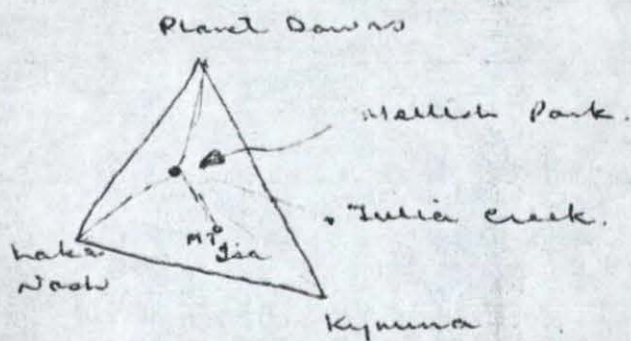 Planet Downs
Mellish Park.
Julia Creek.
Mt
Isa
Lake
Nash
Kynuna